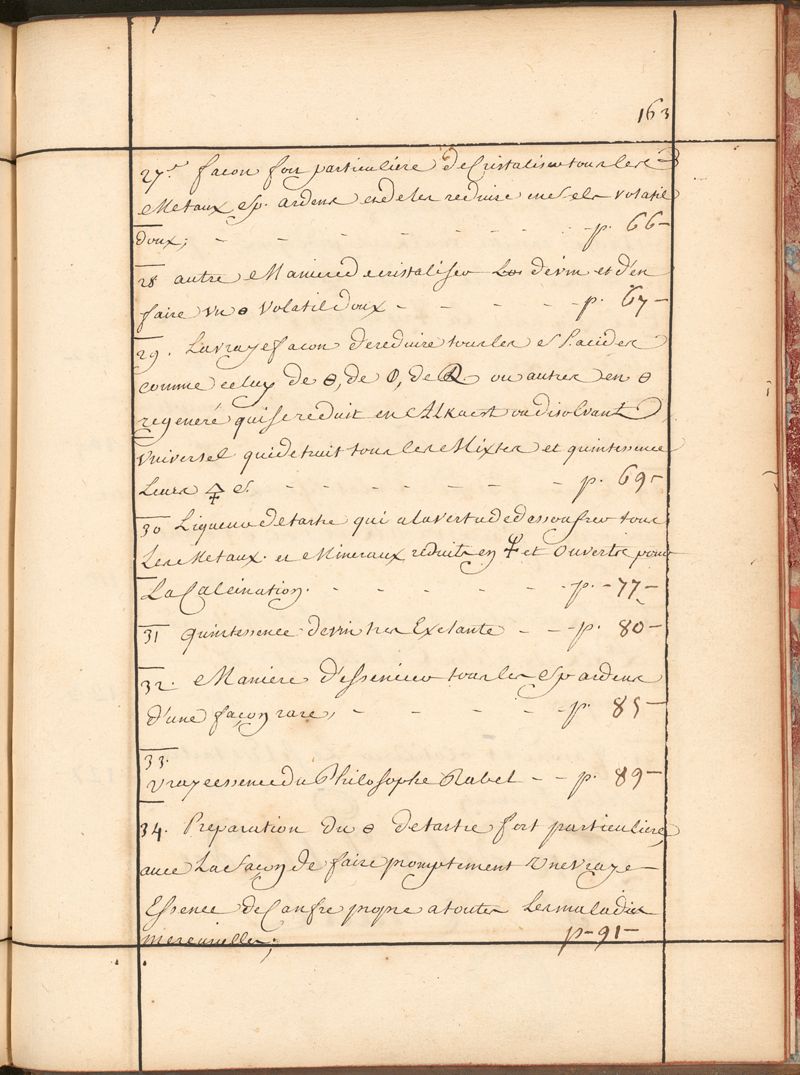 163
27.e façon fort particuliere de Cristaliser tous les
Metaux, sp. ardens et de les reduire en sels volatil
doux; - - - - - - - p. 66 -
28 autre Maniere de cristaliser Les de vin et d'en
faire un 🜔 Volatil doux - - - - - p. 67 -
29. La vraye façon de reduire tous les sp. acides
comme celuy de 🜔, de 🜕, de ou autres en 🜔
regeneré qui se reduit en Alkaest ou disolvant
Vniversel qui detruit tous les Mixtes et quintessencie
Leurs 🜍 &. - - - - - - p. 69 -
30 Liqueur de tartre qui a la vertu de dessoufrer tous
Les Metaux et Mineraux reduits en et ouverts pour
La Calcination. - - - - - p. - 77 -
31 quintessence de vin tres Exelante - - p. 80 -
32. Maniere d'essencier tous les sp ardens
d'une façon rare, - - - - - p. 85 -
33.
Vraye essence du Philosophe Rabel - - p. 89 -
34. Preparation du 🜔 de tartre fort particuliere,
avec La façon de faire promptement Une vraye
Essence de Canfre propre a toutes Les maladies
merveilles; p - 91 -